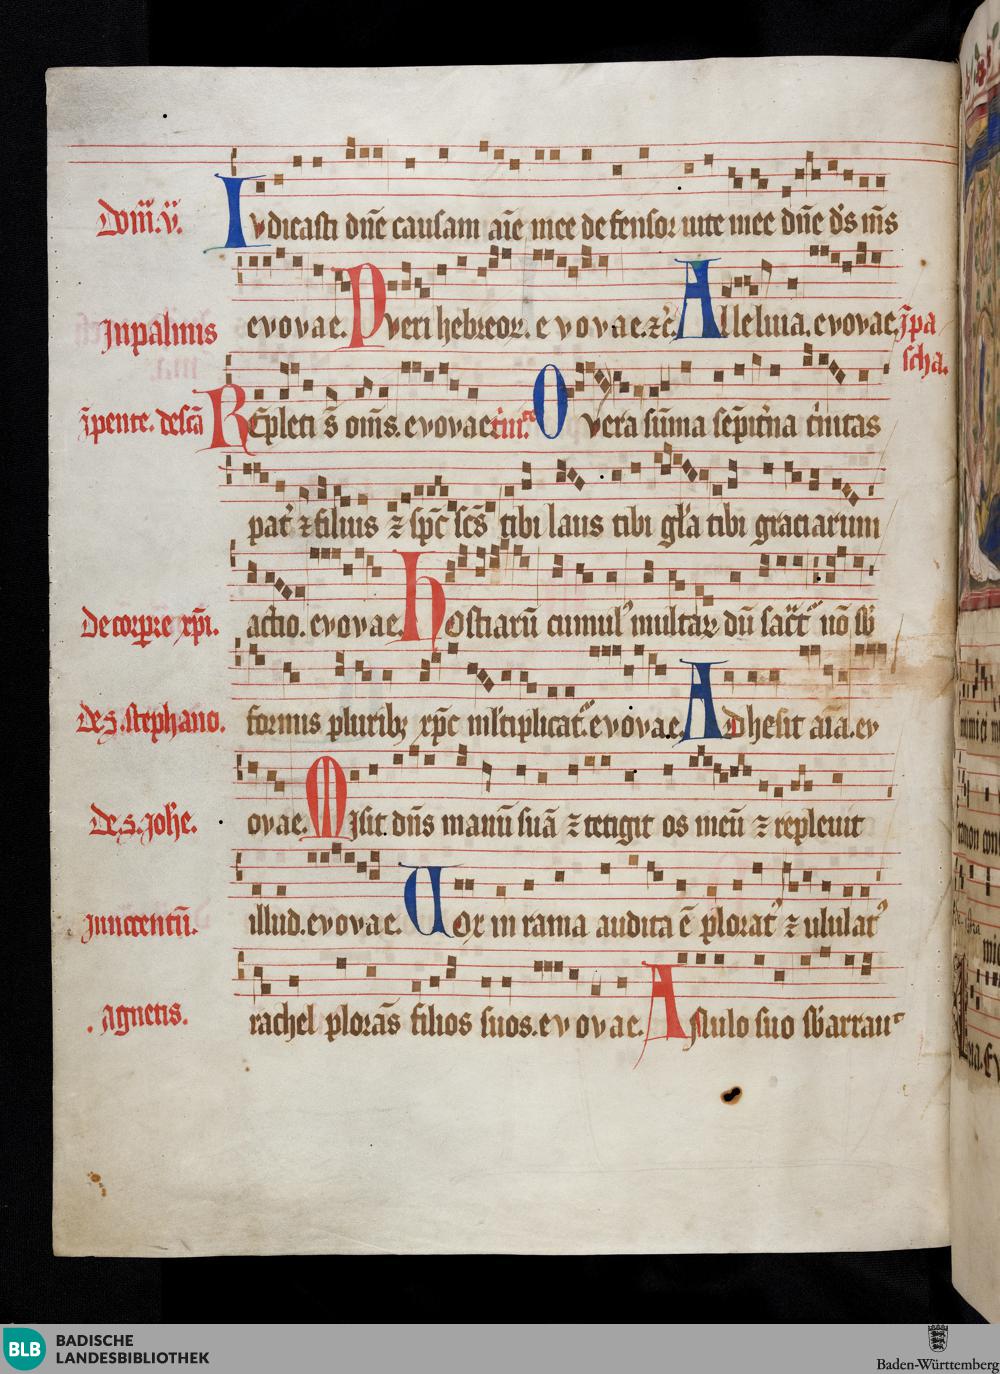 Dom̄. v̄. Iudicasti dn̄e causam aīe mee defensor uite mee dn̄e ds̄ ms̄
In palmis evovae. Pveri hebreoꝝ. evovae. ꝛc̄. Alleluia. evovae. ī pa
scha.
ī pente. de scā Repleti s̄ om̄s. evovae tͥni.te O vera sūma sēpit̾na tͥnitas
pat̾ ꝛ filius ꝛ sp̄c sc̄s tibi laus tibi gl̄a tibi graciarum
De corpr̄e xp̄i. actio. evovae. Hostiarū cumul᷒ multaꝝ dū sac̄t᷒ nō sb̄
de s. stephano. formis pluribꝫ xp̄c ml̄tiplicat᷒. evovae. Adhesit aīa. ev
De s. Joh̄e. ovae. Misit dn̄s manū suā ꝛ tetigit os meū ꝛ repleuit
Innocentū. illud. evovae. Uox in rama audita ē plorat᷒ ꝛ ululat᷒
. agnetis. rachel plorās filios suos. evovae. Anulo suo sb̄arrau
BLB BADISCHE
LANDESBIBLIOTHEK
Baden-Württemberg